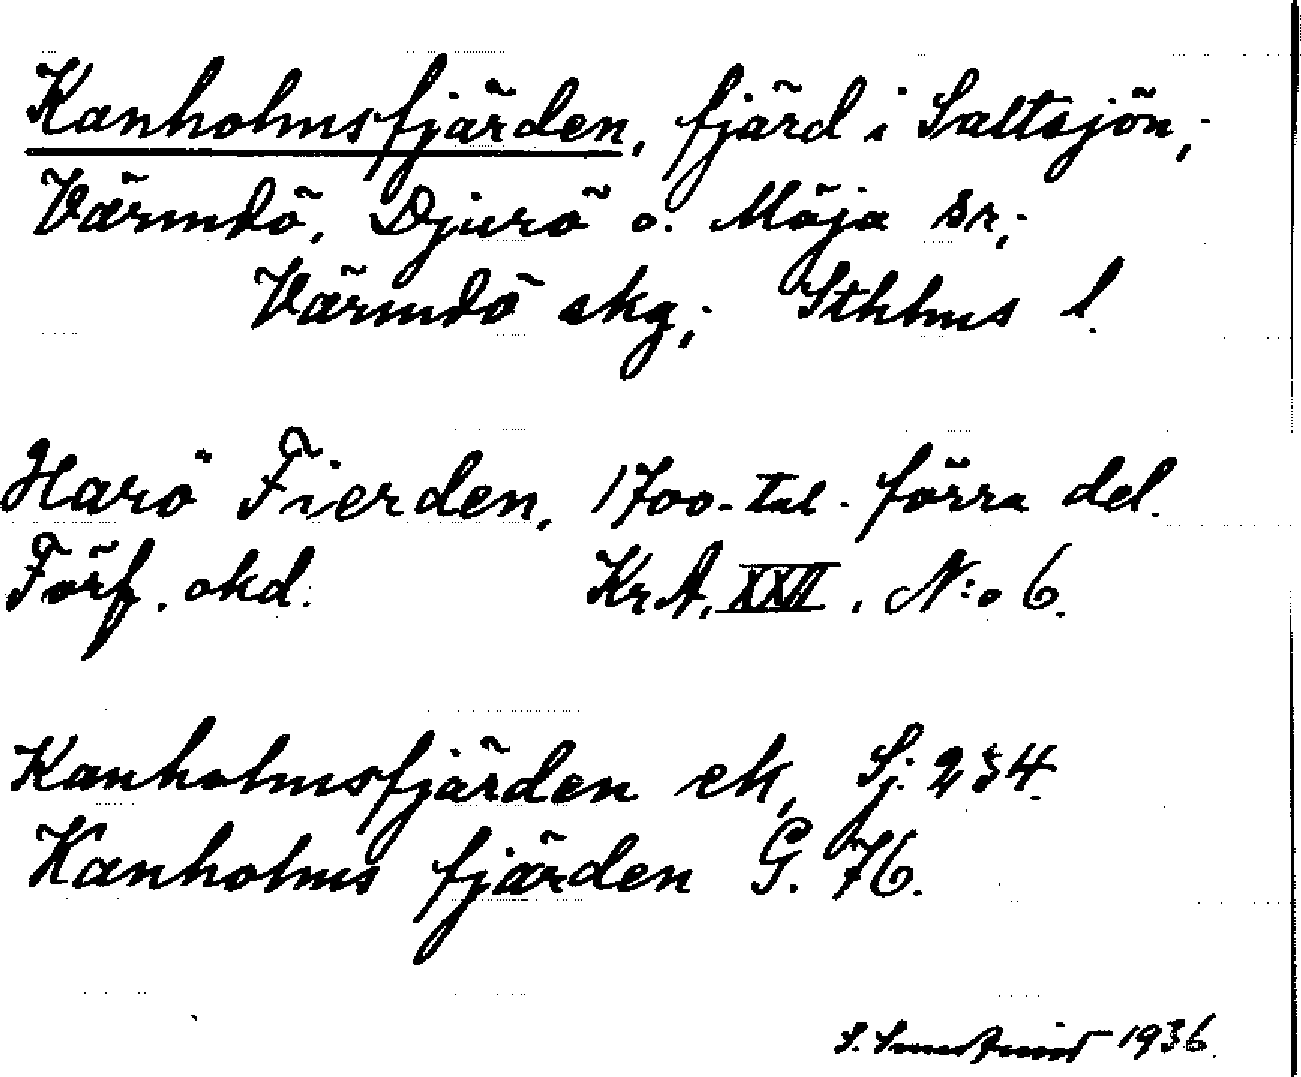 Kanholmsfjärden, fjärd i Saltsjön;
Värmdö, Djurö o. Möja sr;
Värmdö skg; Sthlms l.
Harö Fierden, 1700-tal. förra del.
Förf. okd. Kr A, XXII. N:o 6.
Kanholmsfjärden ek, Sj. 234.
Kanholms fjärden G. 76.
S. 1936.